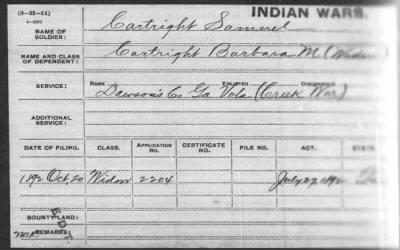 (3-II-11)
INDIAN WARS.
NAME OF SOLDIER: Cartright Samuel
NAME AND CLASS OF DEPENDENT: Cartright Barbara M (Widow)
RANK ENLISTED DISCHARGED
SERVICE: Dawson's Co Ga Vols (Creek War)
ADDITIONAL SERVICE:
DATE OF FILING. CLASS. APPLICATION No. CERTIFICATE No. FILE NO. ACT. STATE
1892 Oct, 20 Widow 2204 July 27, 1892
BOUNTY LAND:
REMARKS: